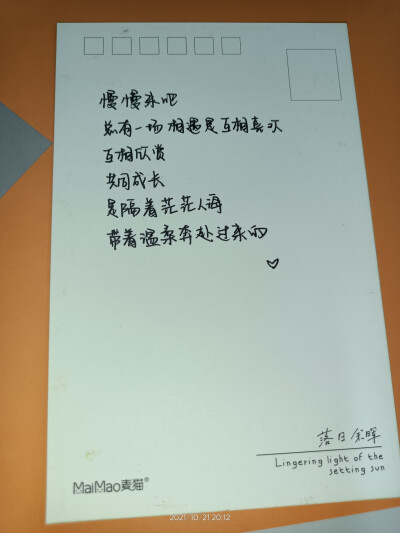 慢慢来吧
总有一场相遇是互相喜欢
互相欣赏
共同成长
是隔着茫茫人海
带着温柔奔赴过来的
♡
落日余晖
Lingering light of the
setting sun
MaiMao麦猫®
2021·10·21 20:12